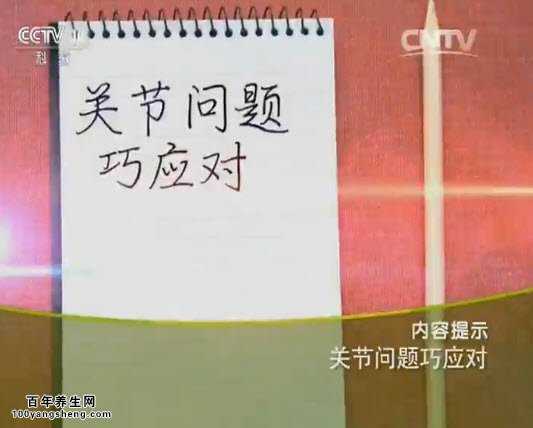 CCTV
CNTV
关节问题
巧应对
内容提示
关节问题巧应对
百年养生网
100yangsheng.com